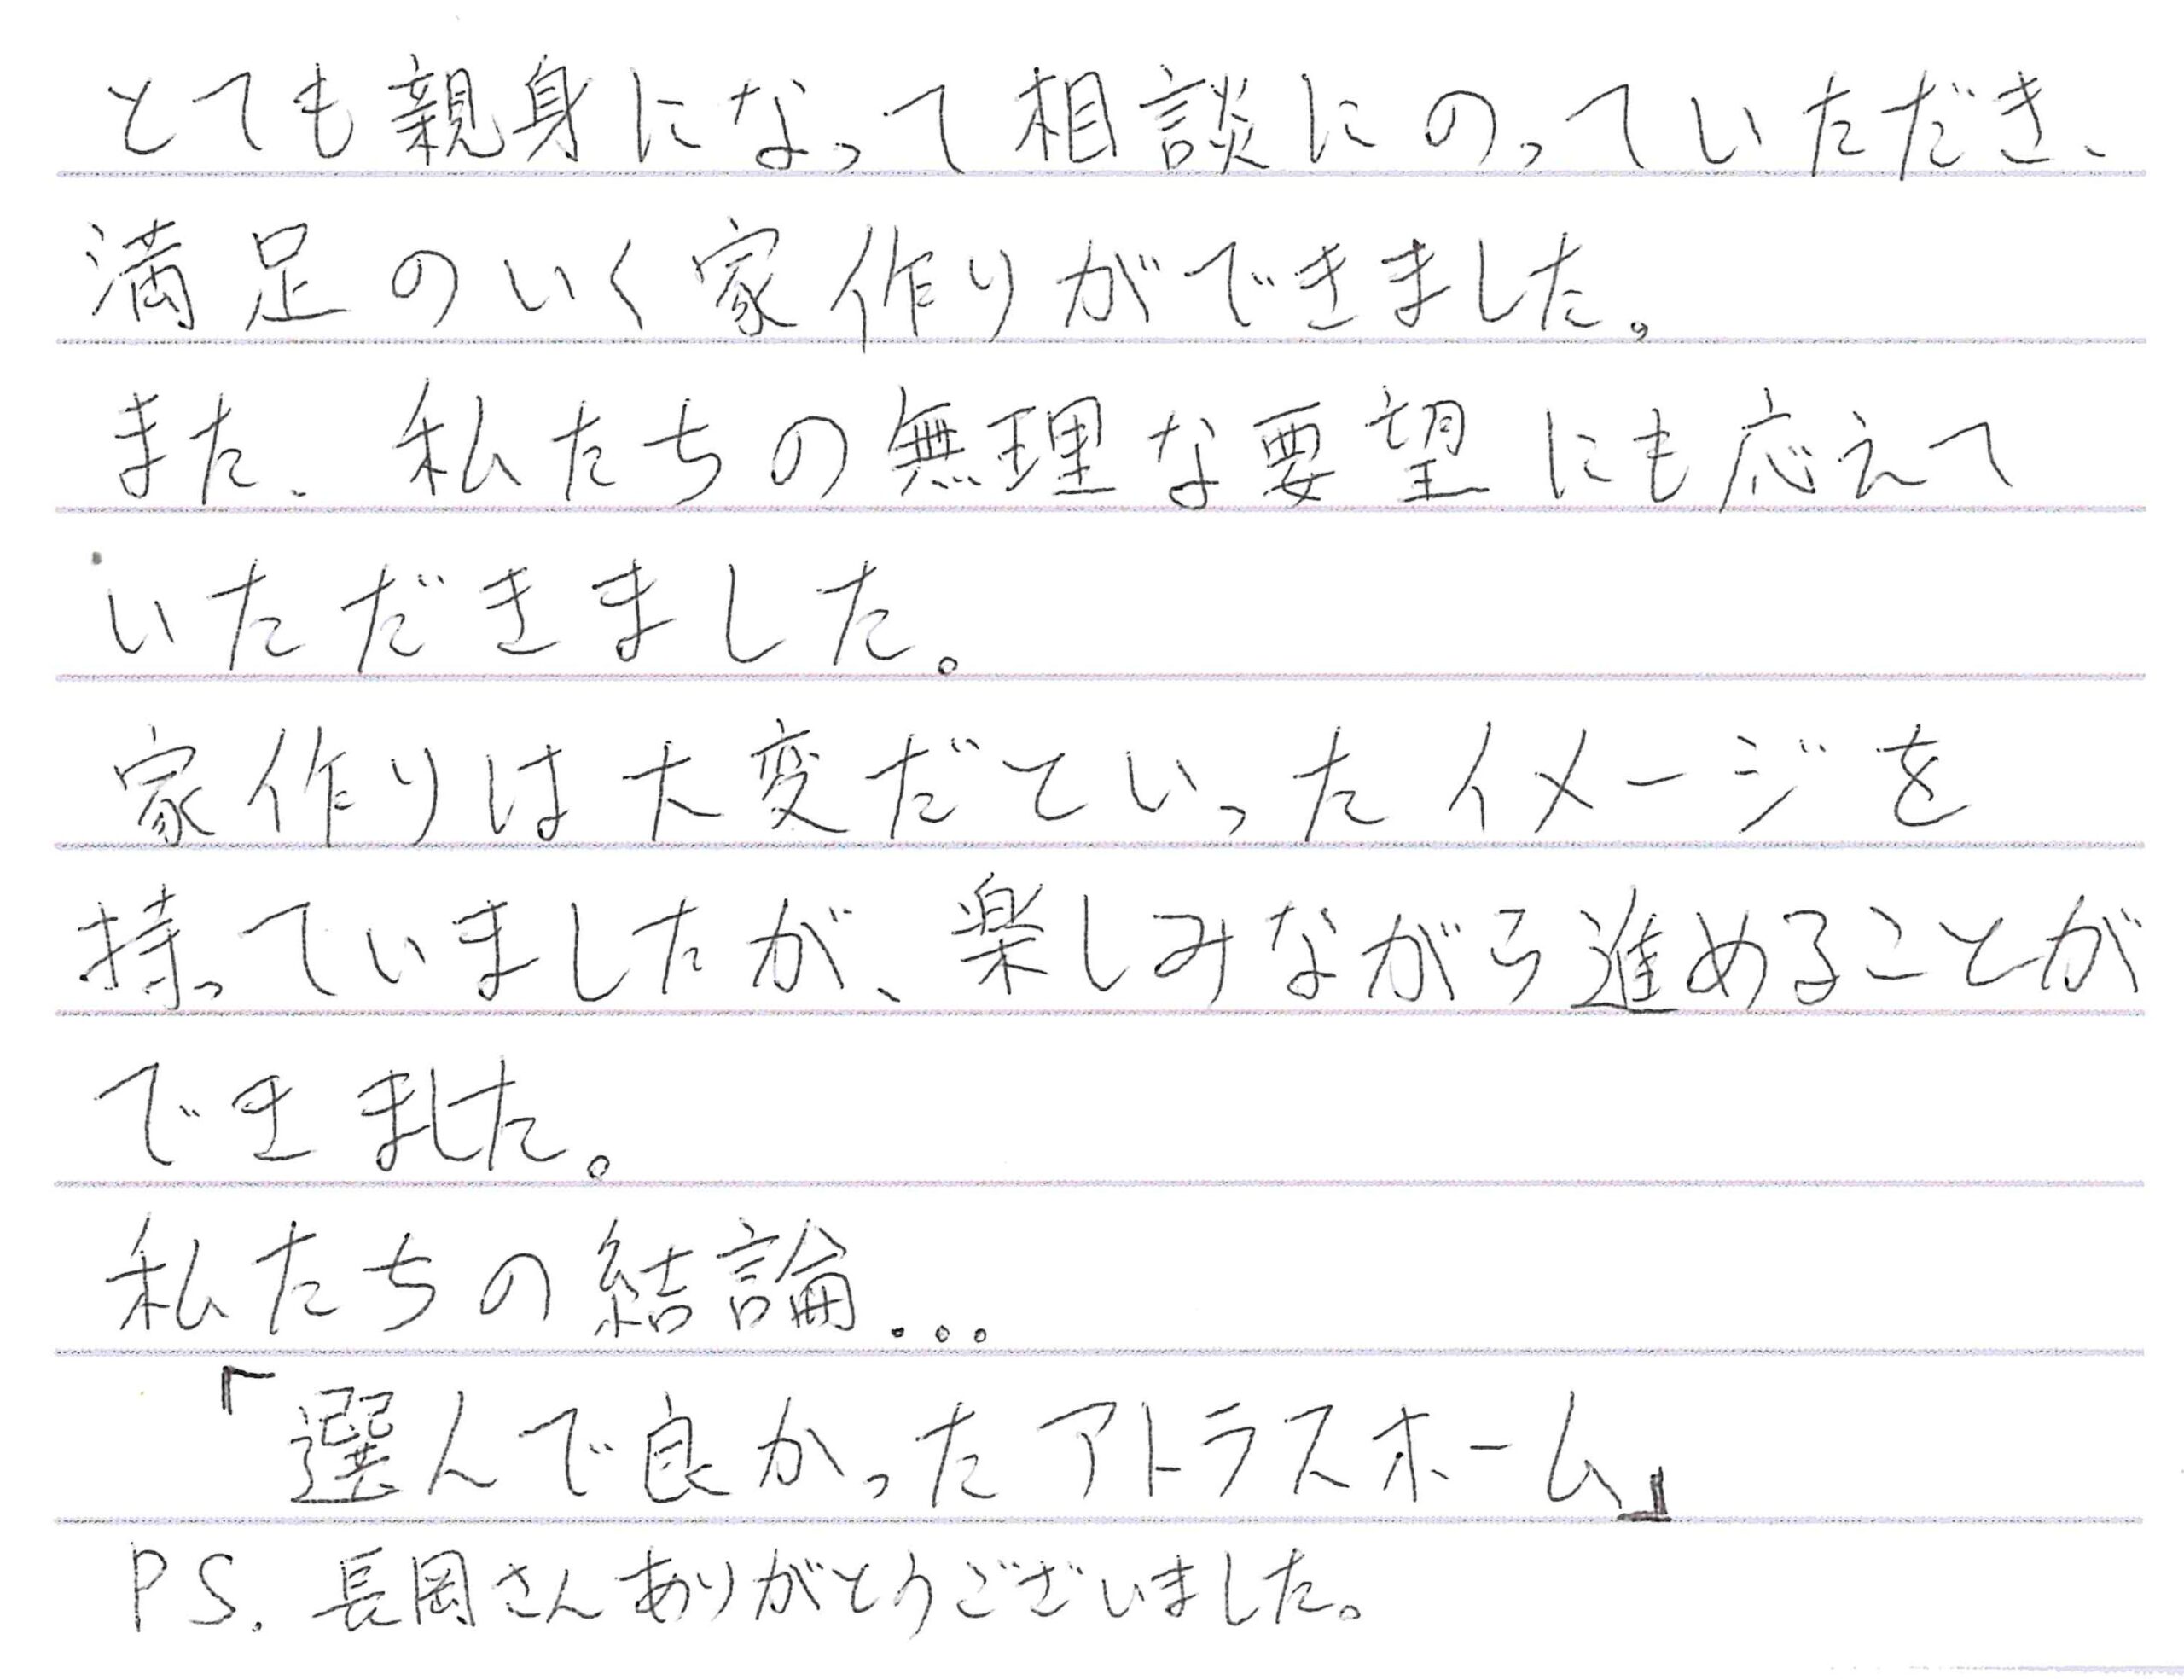 とても親身になって相談にのっていただき、
満足のいく家作りができました。
また、私たちの無理な要望にも応えて
いただきました。
家作りは大変だといったイメージを
持っていましたが、楽しみながら進めることが
できました。
私たちの結論...
「選んで良かったアトラスホーム」
PS. 長岡さんありがとうございました。